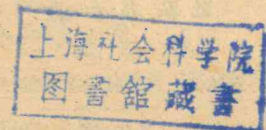 上海社会科学院
图書館藏書